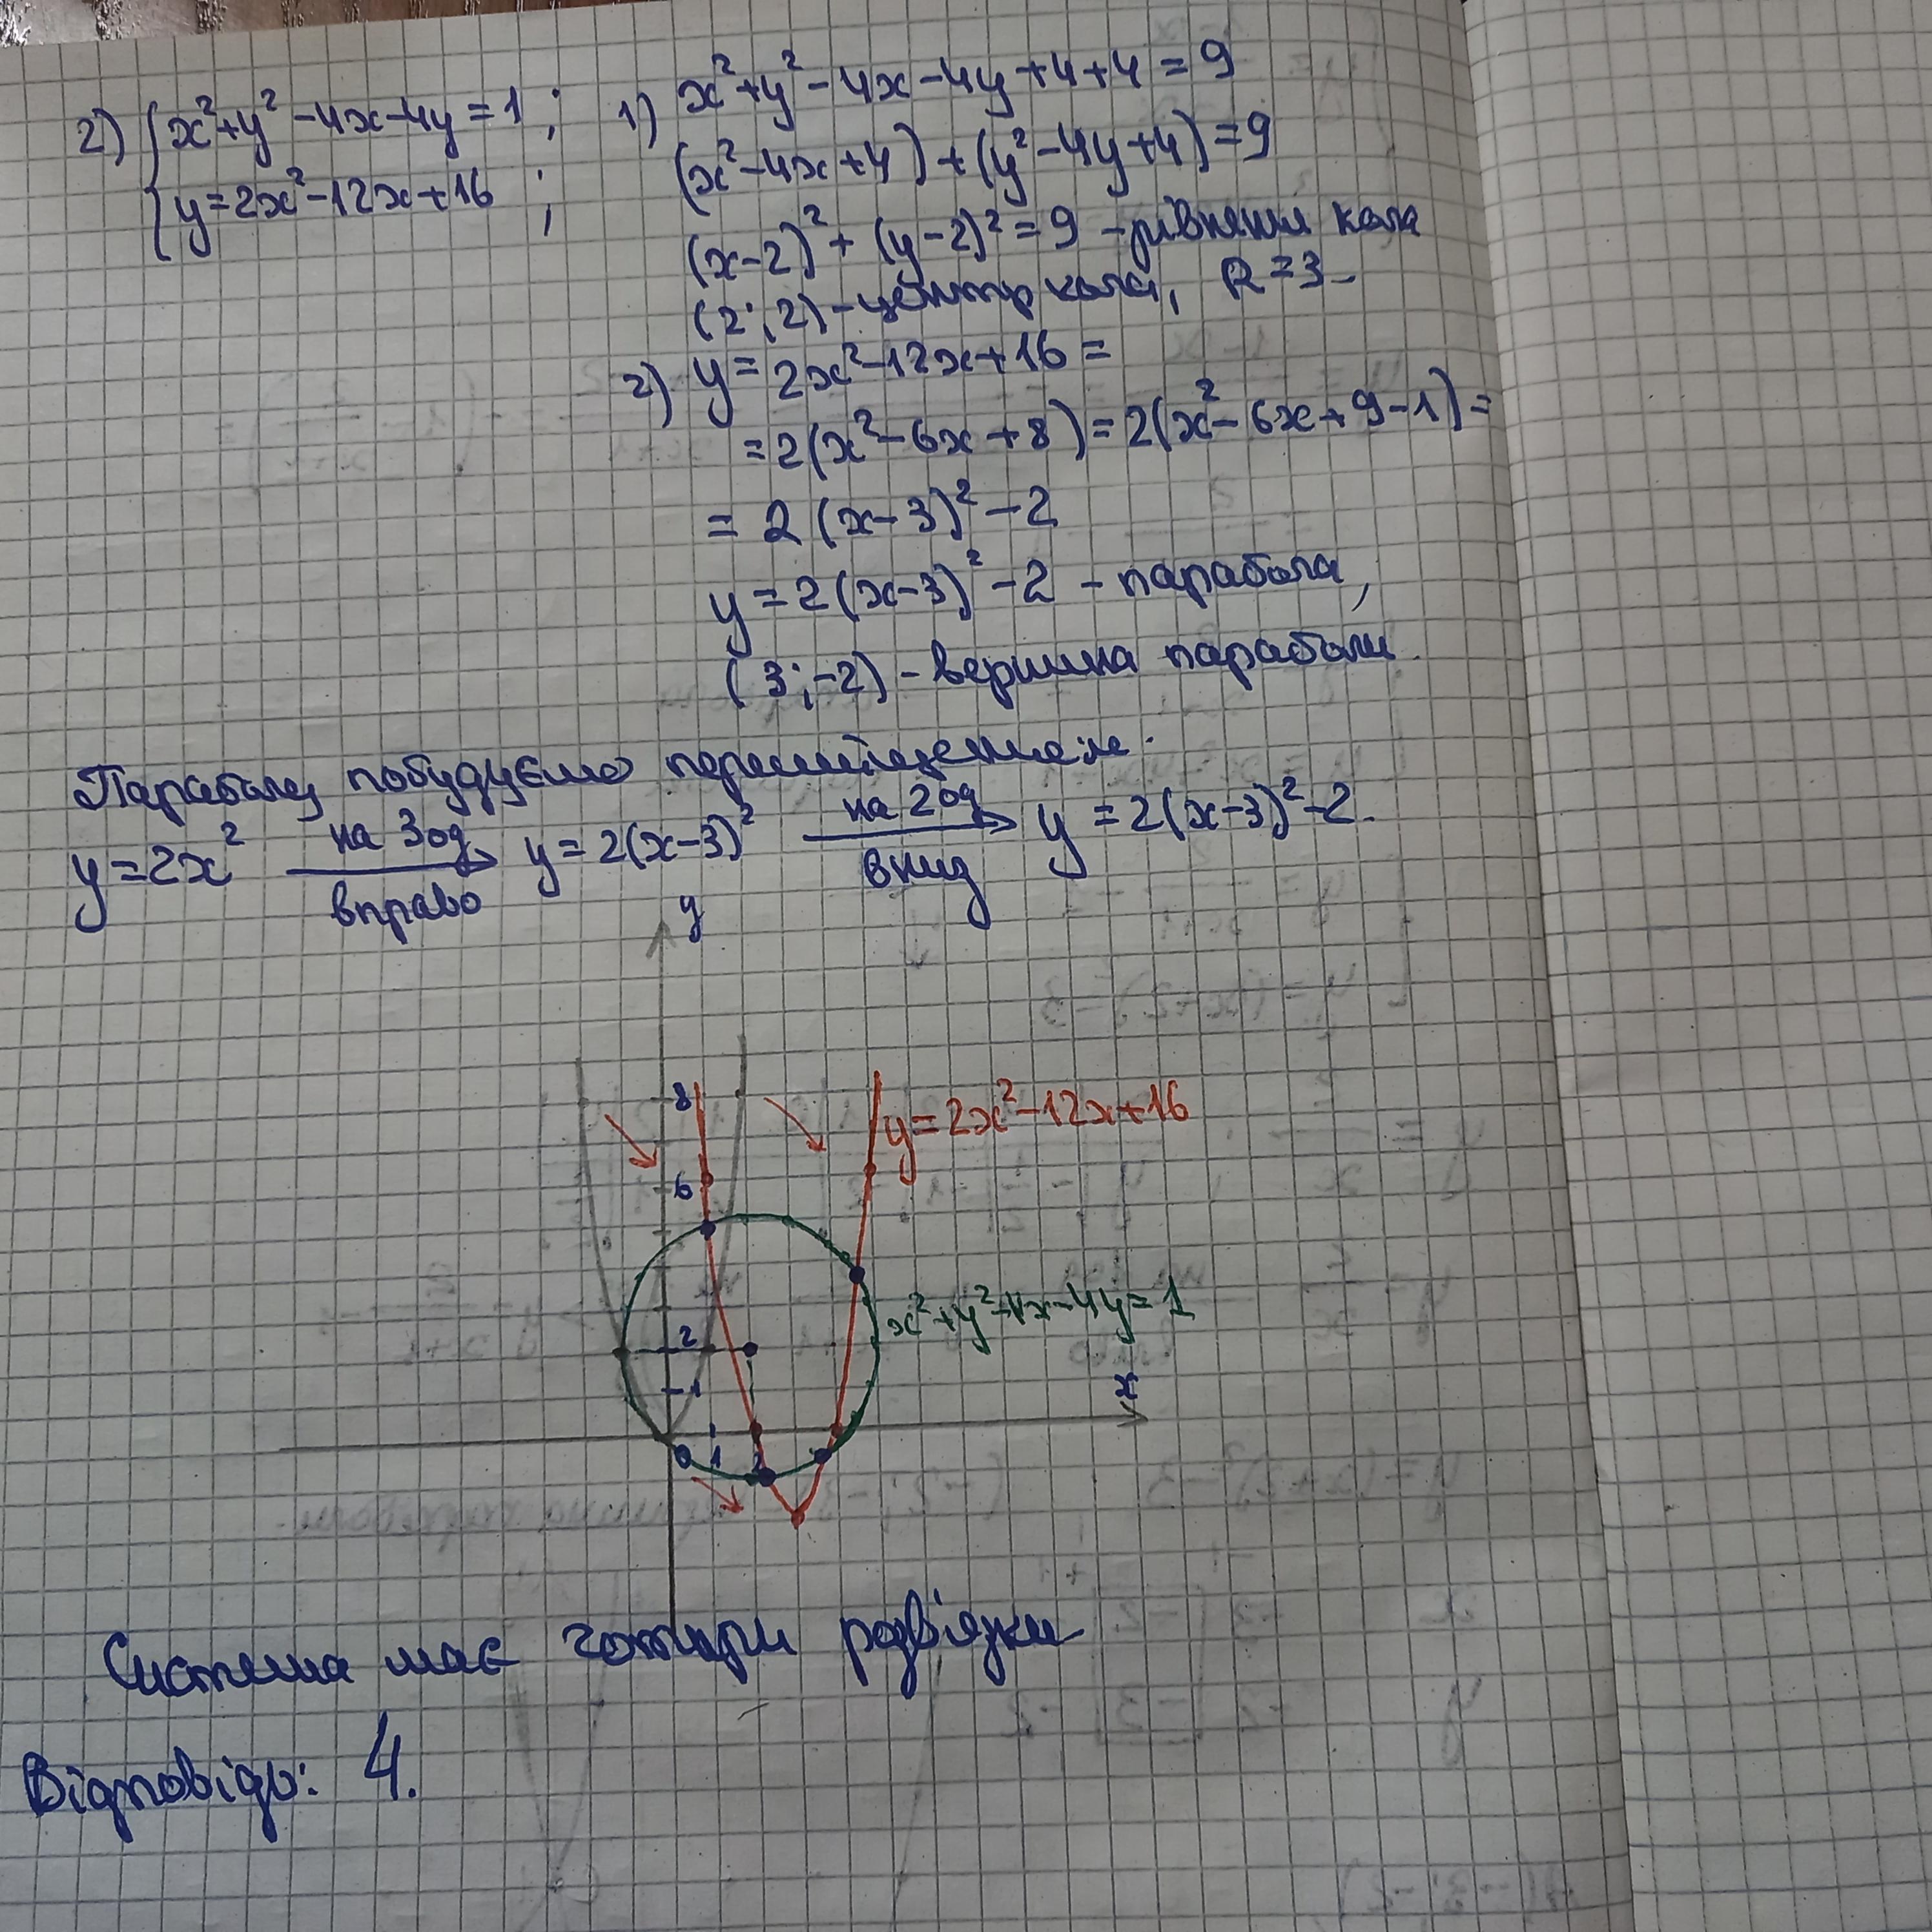 2) { x²+y²-4x-4y=1 ;
y=2x²-12x+16 ;
1) x²+y²-4x-4y+4+4=9
(x²-4x+4)+(y²-4y+4)=9
(x-2)²+(y-2)²=9 - рівняння кола
(2;2) - центр кола, R=3
2) y=2x²-12x+16=
=2(x²-6x+8)=2(x²-6x+9-1)=
=2(x-3)²-2
y=2(x-3)²-2 - парабола,
(3;-2) - вершина параболи.
Параболу побудуємо переміщенням:
y=2x² на 3 од вправо → y=2(x-3)² на 2 од вниз → y=2(x-3)²-2.
y
8
y=2x²-12x+16
6
x²+y²-4x-4y=1
2
1
x
0 1 2
Система має чотири розв'язки
Відповідь: 4.